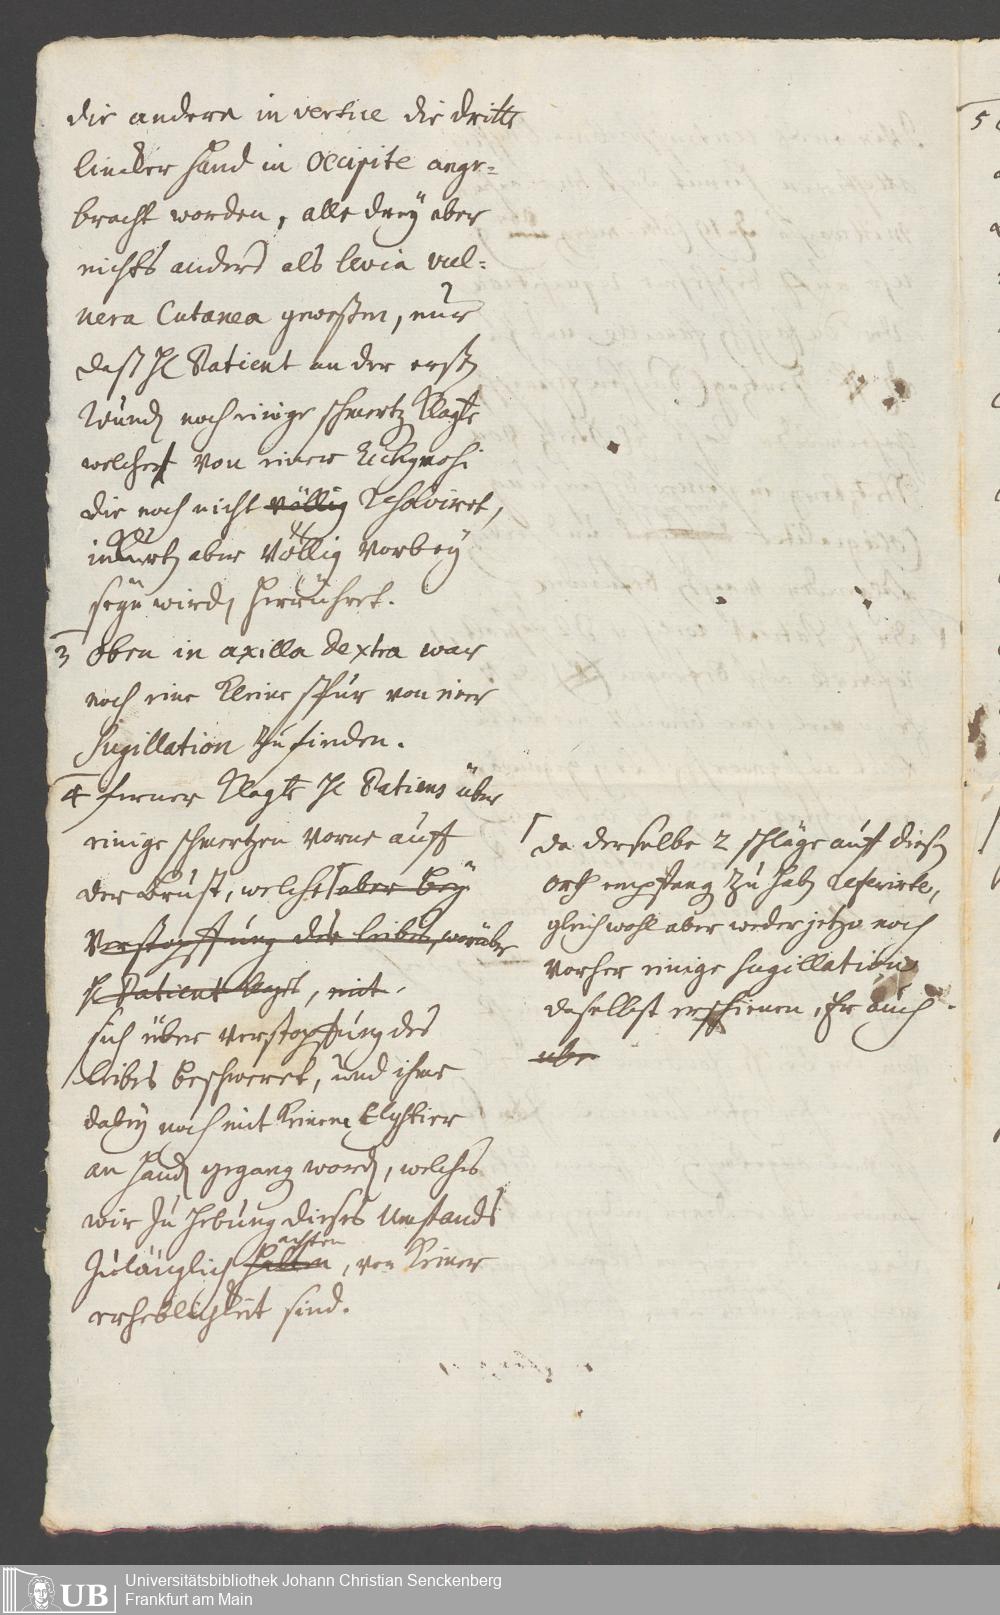 die andere in vertice die dritte
lincker Hand in Occipite ange-
bracht worden, alle drey aber
nichts anders als levia vul-
nera Cutanea geweßen, nur
daß H Patient an der erst
Wund noch einige schmertz klagte
welcher von einer Ecchymosi
die noch nicht völlig Resolviret,
in kurtz aber völlig vorbey
seyn wird, herrühret.
3 Oben in axilla dextra war
noch eine kleine spur von einer
Sugillation zu finden.
4 ferner klagte H Patiens über
einige schmertzen vorne auff
der Brust, welche aber bey
Verstopffung des leibes, worüber
H Patient klagt, mit
sich über verstopffung des
leibes beschweret, und ihme
dabey noch mit keinem Clystier
an Hand gegang word, welches
wir zu Hebung dieses Umstands
achten
zulänglich halten, von keiner
erheblichkeit sind.
da derselbe 2 schläge auff diesen
orth empfang zu hab referirte,
gleichwohl aber weder jetzo noch
vorher einige sugillation
daselbst erschienen, Er auch
ube
5
Universitätsbibliothek Johann Christian Senckenberg
Frankfurt am Main
UB